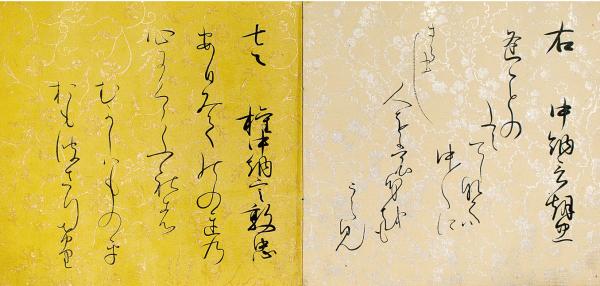 右 中納言朝忠
逢ことの
たえてしなくハ
中〳〵に
人をも身をも
うらみ
さらまし
左 権中納言敦忠
あひみての後乃
心にくらふれは
むかしハものを
おも波さりけり